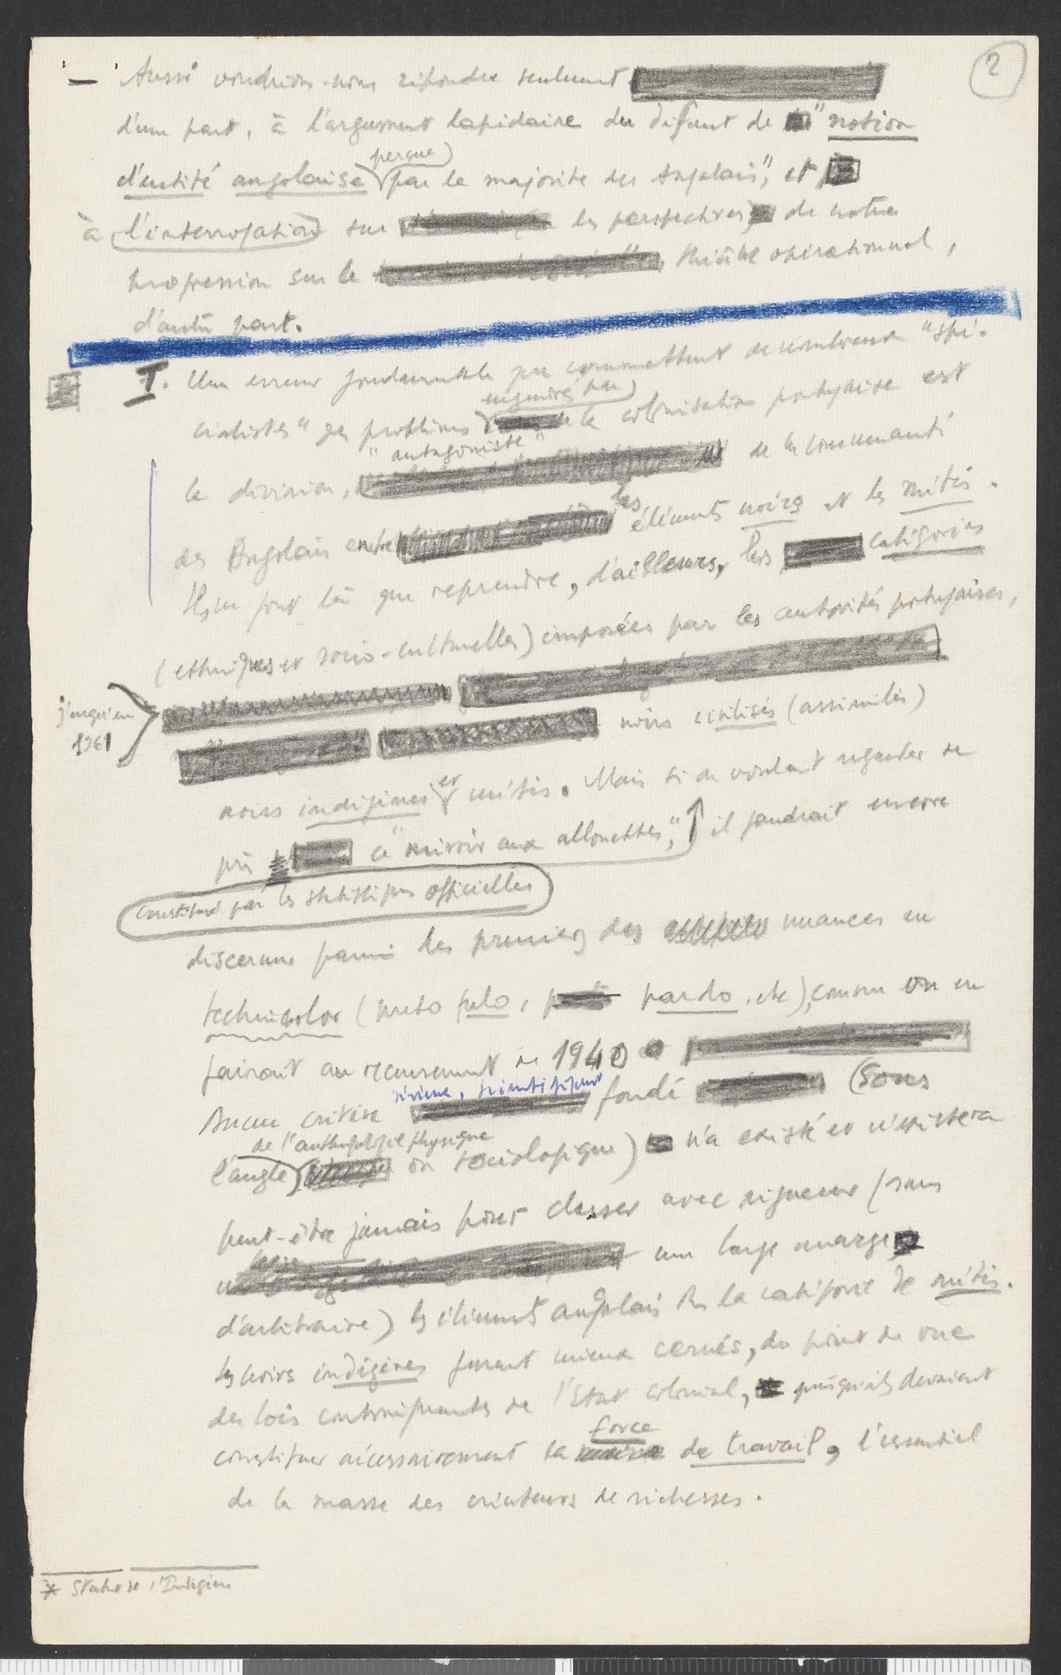 2
— Aussi voudrions-nous répondre seulement
d'une part, à l'argument lapidaire du défunt de "notion
d'entité angolaise perçue par la majorité des Angolais", et
à l'interrogation sur les perspectives de notre
progression sur le théâtre opérationnel,
d'autre part.
I. Une erreur fondamentale que commettent de nombreux "spé-
cialistes" des problèmes engendrés par la colonisation portugaise est
la division, "antagoniste" de la communauté
des Angolais entre les éléments noirs et les métis.
Ils ne font là que reprendre, d'ailleurs, les catégories
(ethniques et socio-culturelles) imposées par les autorités portugaises,
jusqu'en
1961
noirs civilisés (assimilés)
noirs indigènes et métis. Mais si on voulait regarder de
près ce "miroir aux allouettes", il faudrait encore
constitué par les statistiques officielles
discerner parmi les premiers des nuances en
technicolor (preto fulo, pardo, etc), comme on en
faisait au recensement de 1940
Aucun critère sérieux, scientifiquement fondé (sous
l'angle de l'anthropologie physique ou sociologique) n'a existé et n'existera
peut-être jamais pour classer avec rigueur (sans
une large marge
d'arbitraire) les éléments angolais ds la catégorie de métis.
Les noirs indigènes furent mieux cernés, du point de vue
des lois contraignantes de l'Etat colonial, puisqu'ils devaient
constituer nécessairement la force de travail, l'essentiel
de la masse des créateurs de richesses.
* Statut de l'Indigène